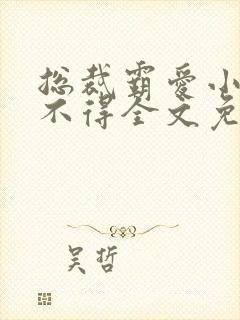 总裁霸爱小
不得全文免
吴哲